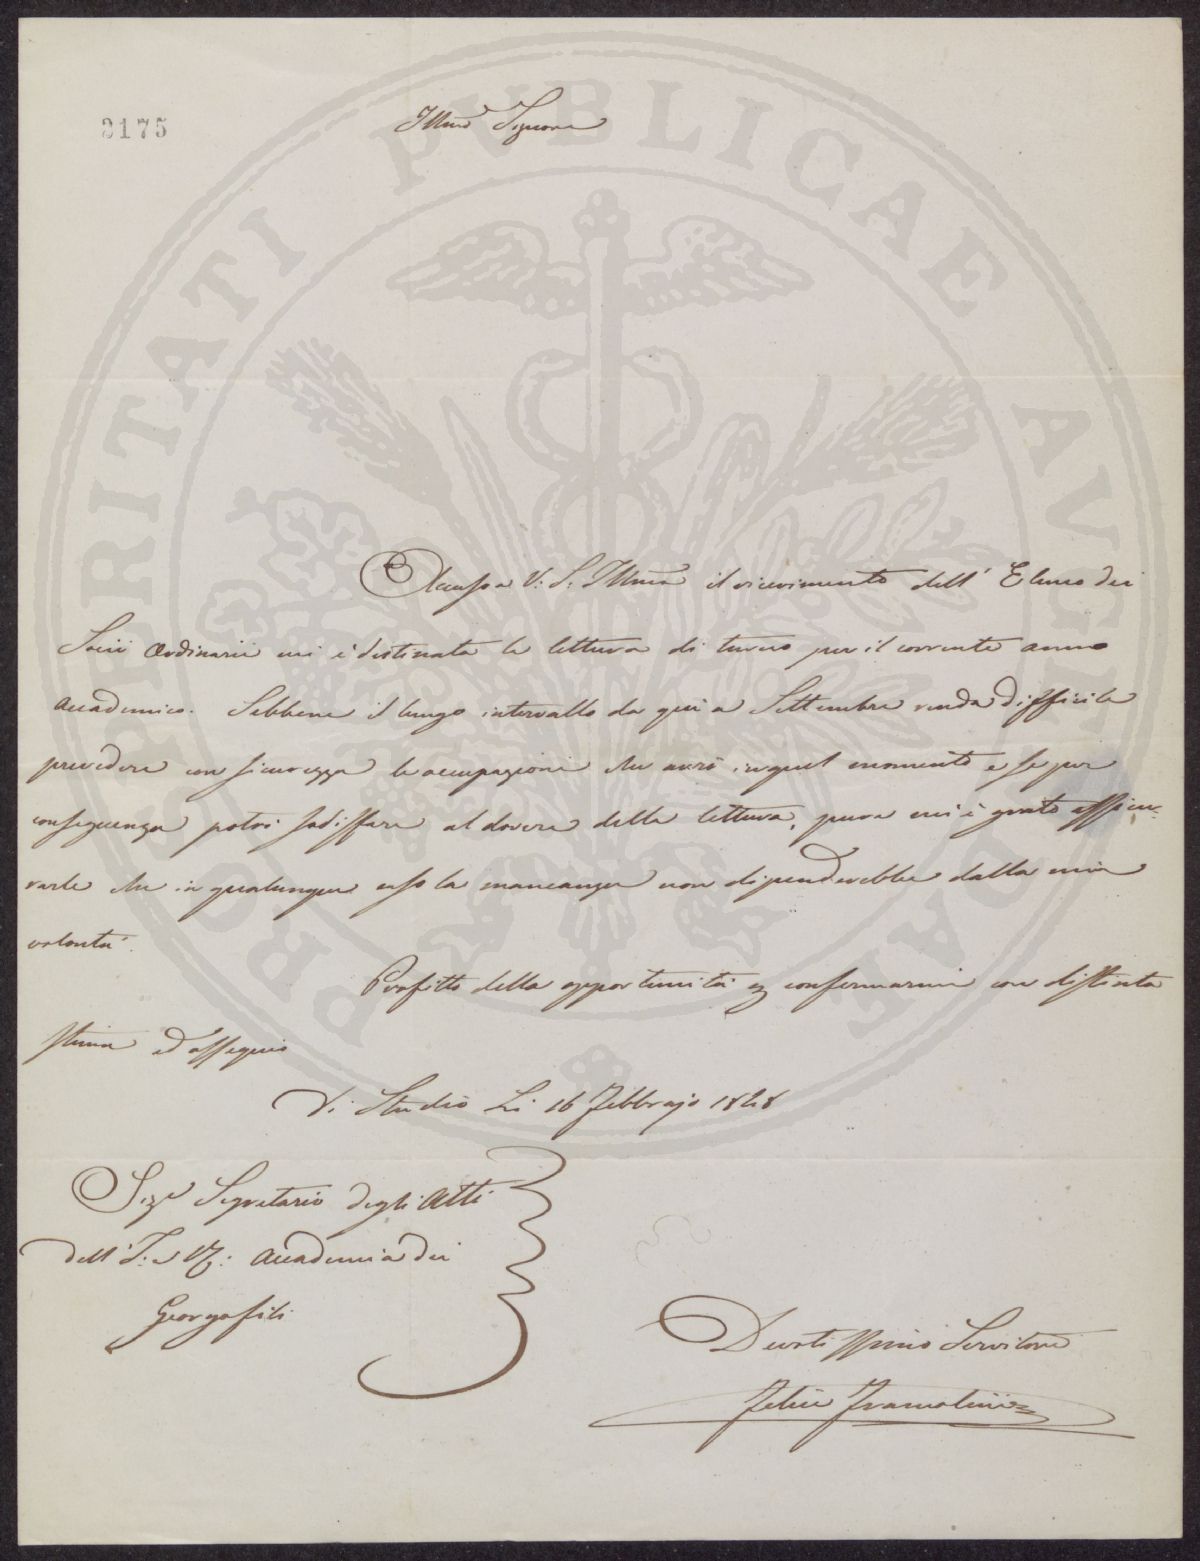 2175
Illmo Signore
Accuso a V: S: Illma il ricevimento dell' Elenco dei
Socii Ordinarii cui è destinata la lettura di turno per il corrente anno
Accademico. Sebbene il lungo intervallo da qui a Settembre renda difficile
prevedere con sicurezza le occupazioni che avrò in quel momento e se per
conseguenza potrò sodisfare al dovere della lettura, pure mi è grato assicu-
rarle che in qualunque caso la mancanza non dipenderebbe dalla mia
volontà.
Profitto della opportunità per confermarmi con distinta
stima ed ossequio
Di Studio Li 16 Febbrajo 1848
Sigre Segretario degli Atti
dell' I: e R: Accademia dei
Georgofili
Devotissimo Servitore
Felice Francolini
PROSPERITATI PUBLICAE AUGENDAE